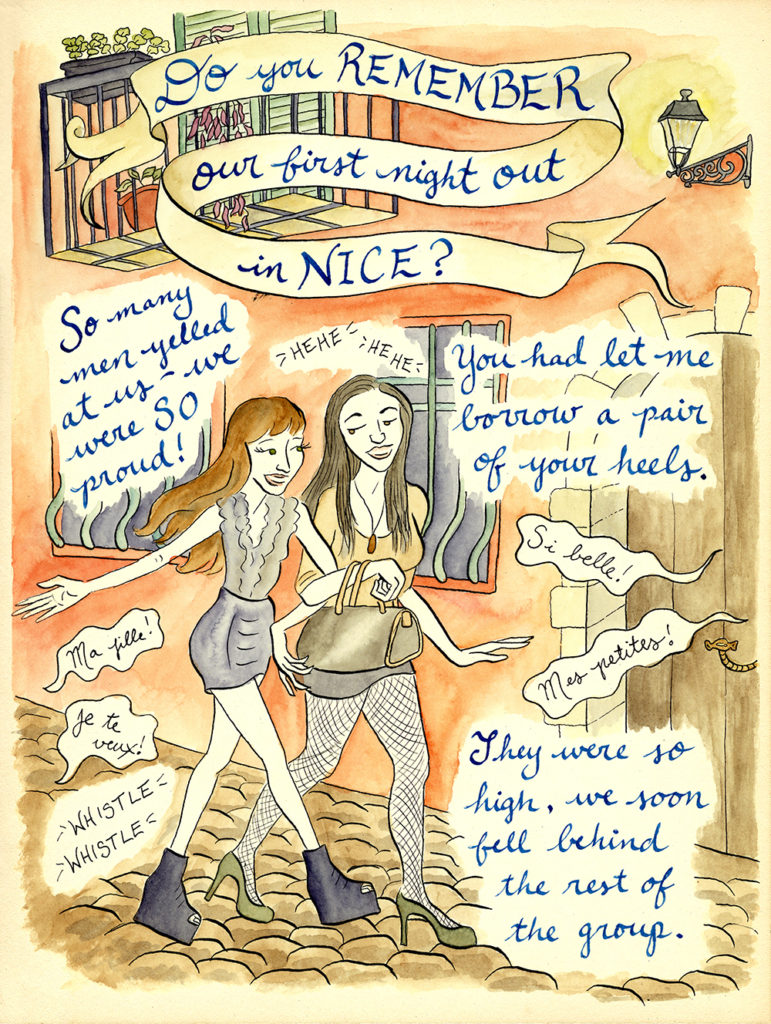 Do you REMEMBER
our first night out
in NICE?
So many
men yelled
at us - we
were SO
proud!
HEHE
HEHE
You had let me
borrow a pair
of your heels.
Si belle!
Ma fille!
Mes petites!
Je te
veux!
WHISTLE
WHISTLE
They were so
high, we soon
fell behind
the rest of
the group.